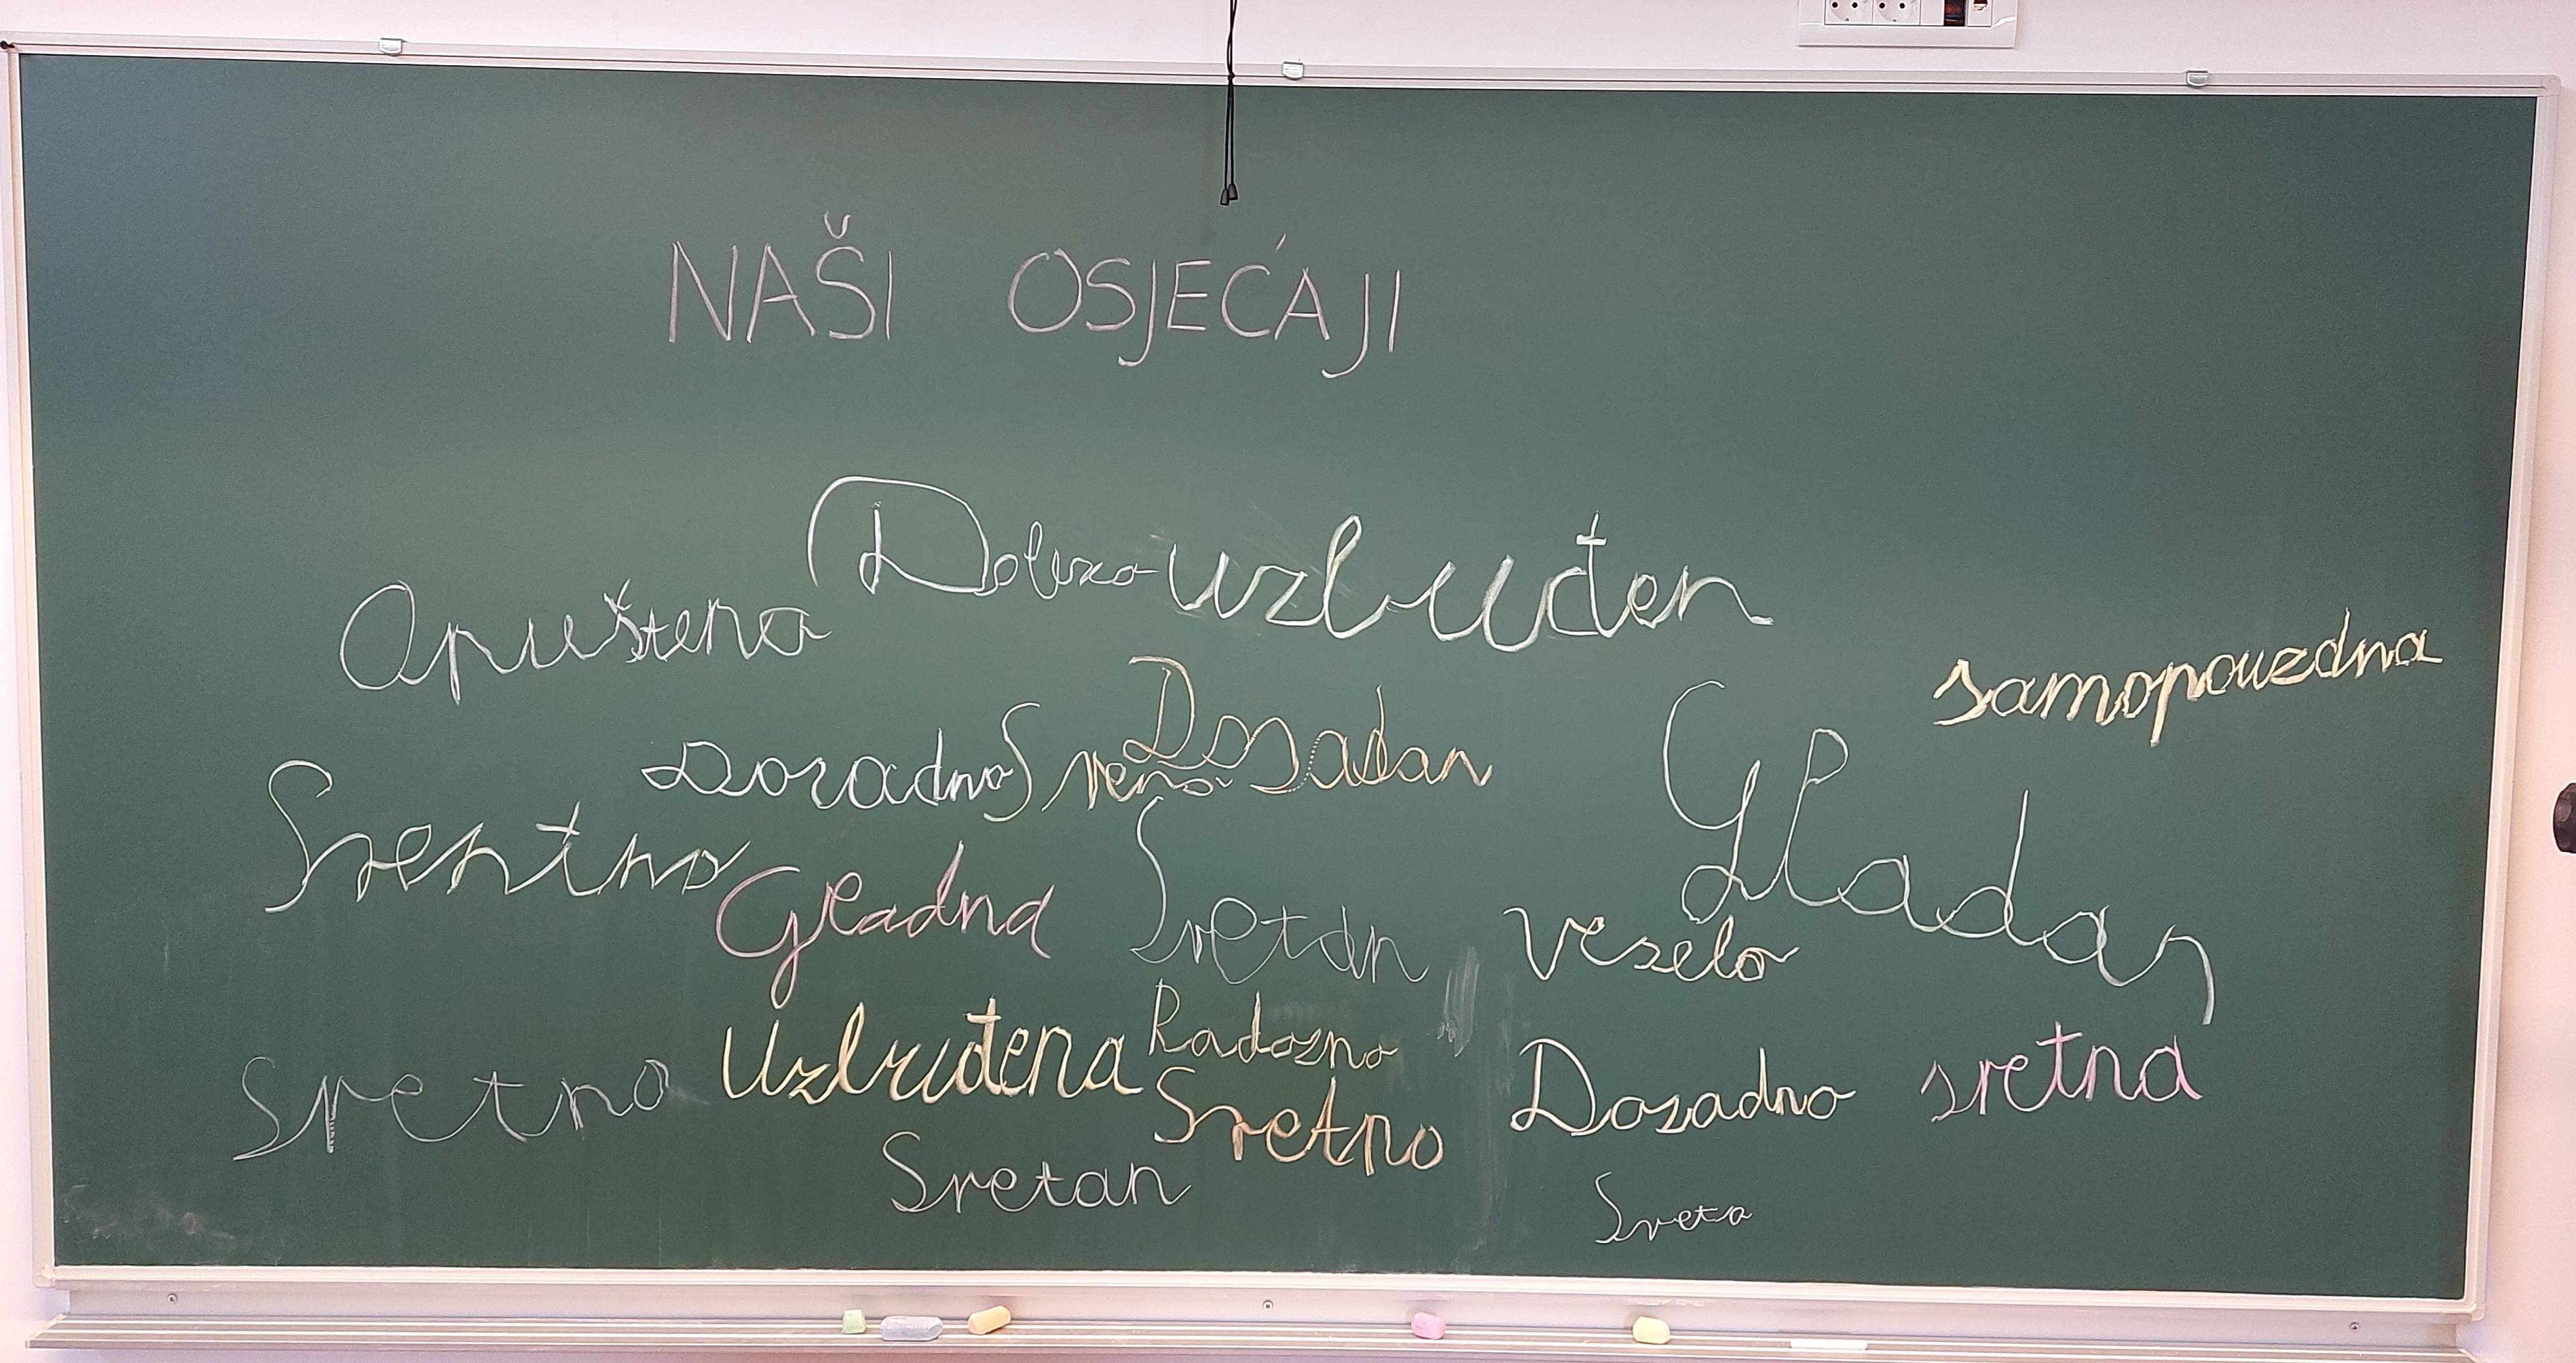 NAŠI OSJEĆAJI
Dobro uzbuđen
Opuštena
samopouzdna
Dosadno Sretno Dosadan
Gladan
Srentno
Gladna Sretan veselo
Uzbuđena Radosno
Sretno Sretno Dosadno sretna
Sretan
Sreta